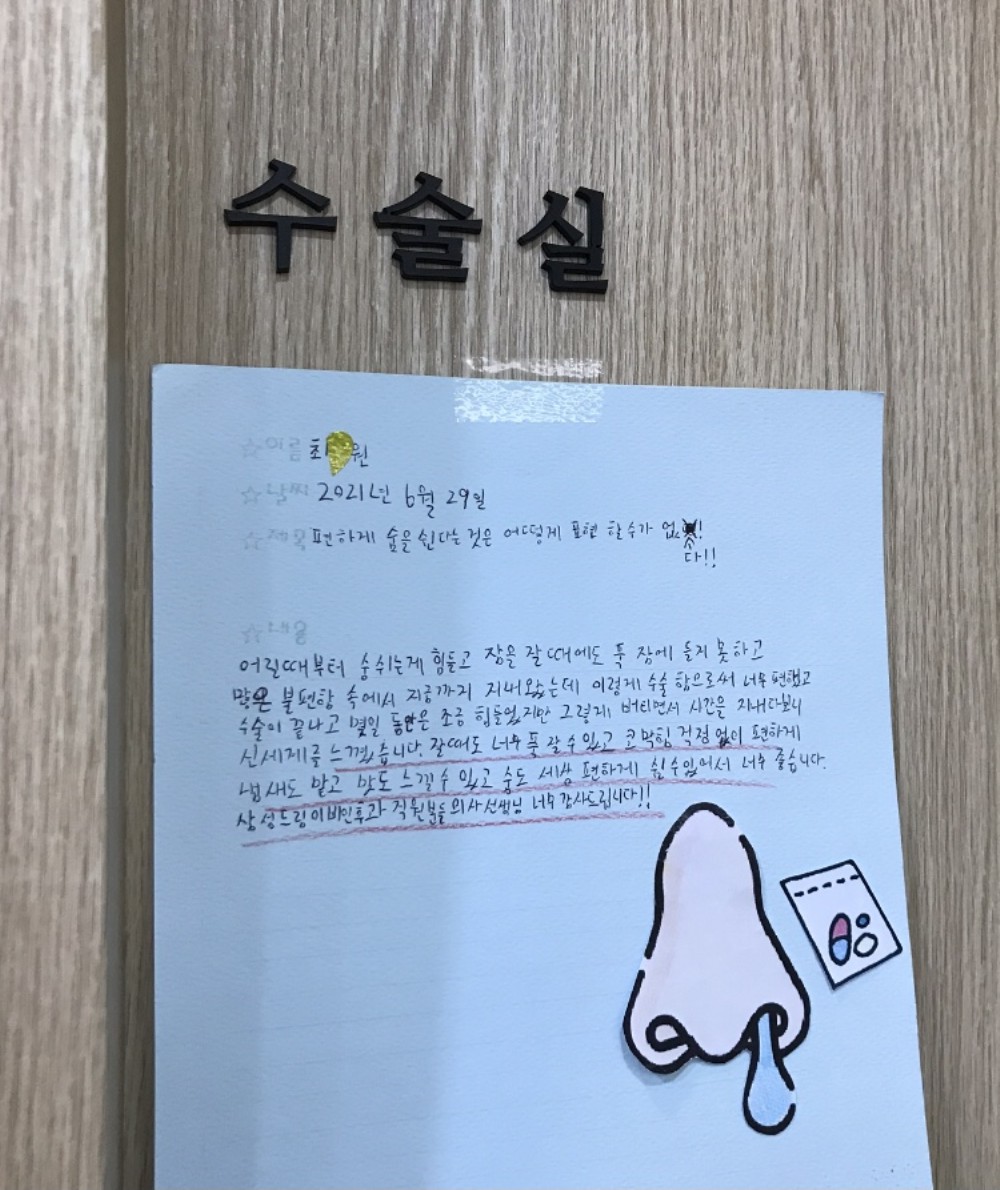 수술실
☆이름 최 원
☆날짜 2021년 6월 29일
☆제목 편하게 숨을 쉰다는 것은 어떻게 표현 할수가 없다!!
☆내용
어릴때부터 숨쉬는게 힘들고 잠을 잘 때에도 푹 잠에 들지 못하고
많은 불편함 속에서 지금까지 지내왔는데 이렇게 수술 함으로써 너무 편했고
수술이 끝나고 몇일 동안은 조금 힘들었지만 그렇게 버티면서 시간을 지내다보니
신세계를 느꼈습니다. 잘때도 너무 푹 잘 수 있고 코막힘 걱정 없이 편하게
냄새도 맡고 맛도 느낄 수 있고 숨도 세상 편하게 쉴 수 있어서 너무 좋습니다.
삼성드림이비인후과 직원분들 의사선생님 너무 감사드립니다!!